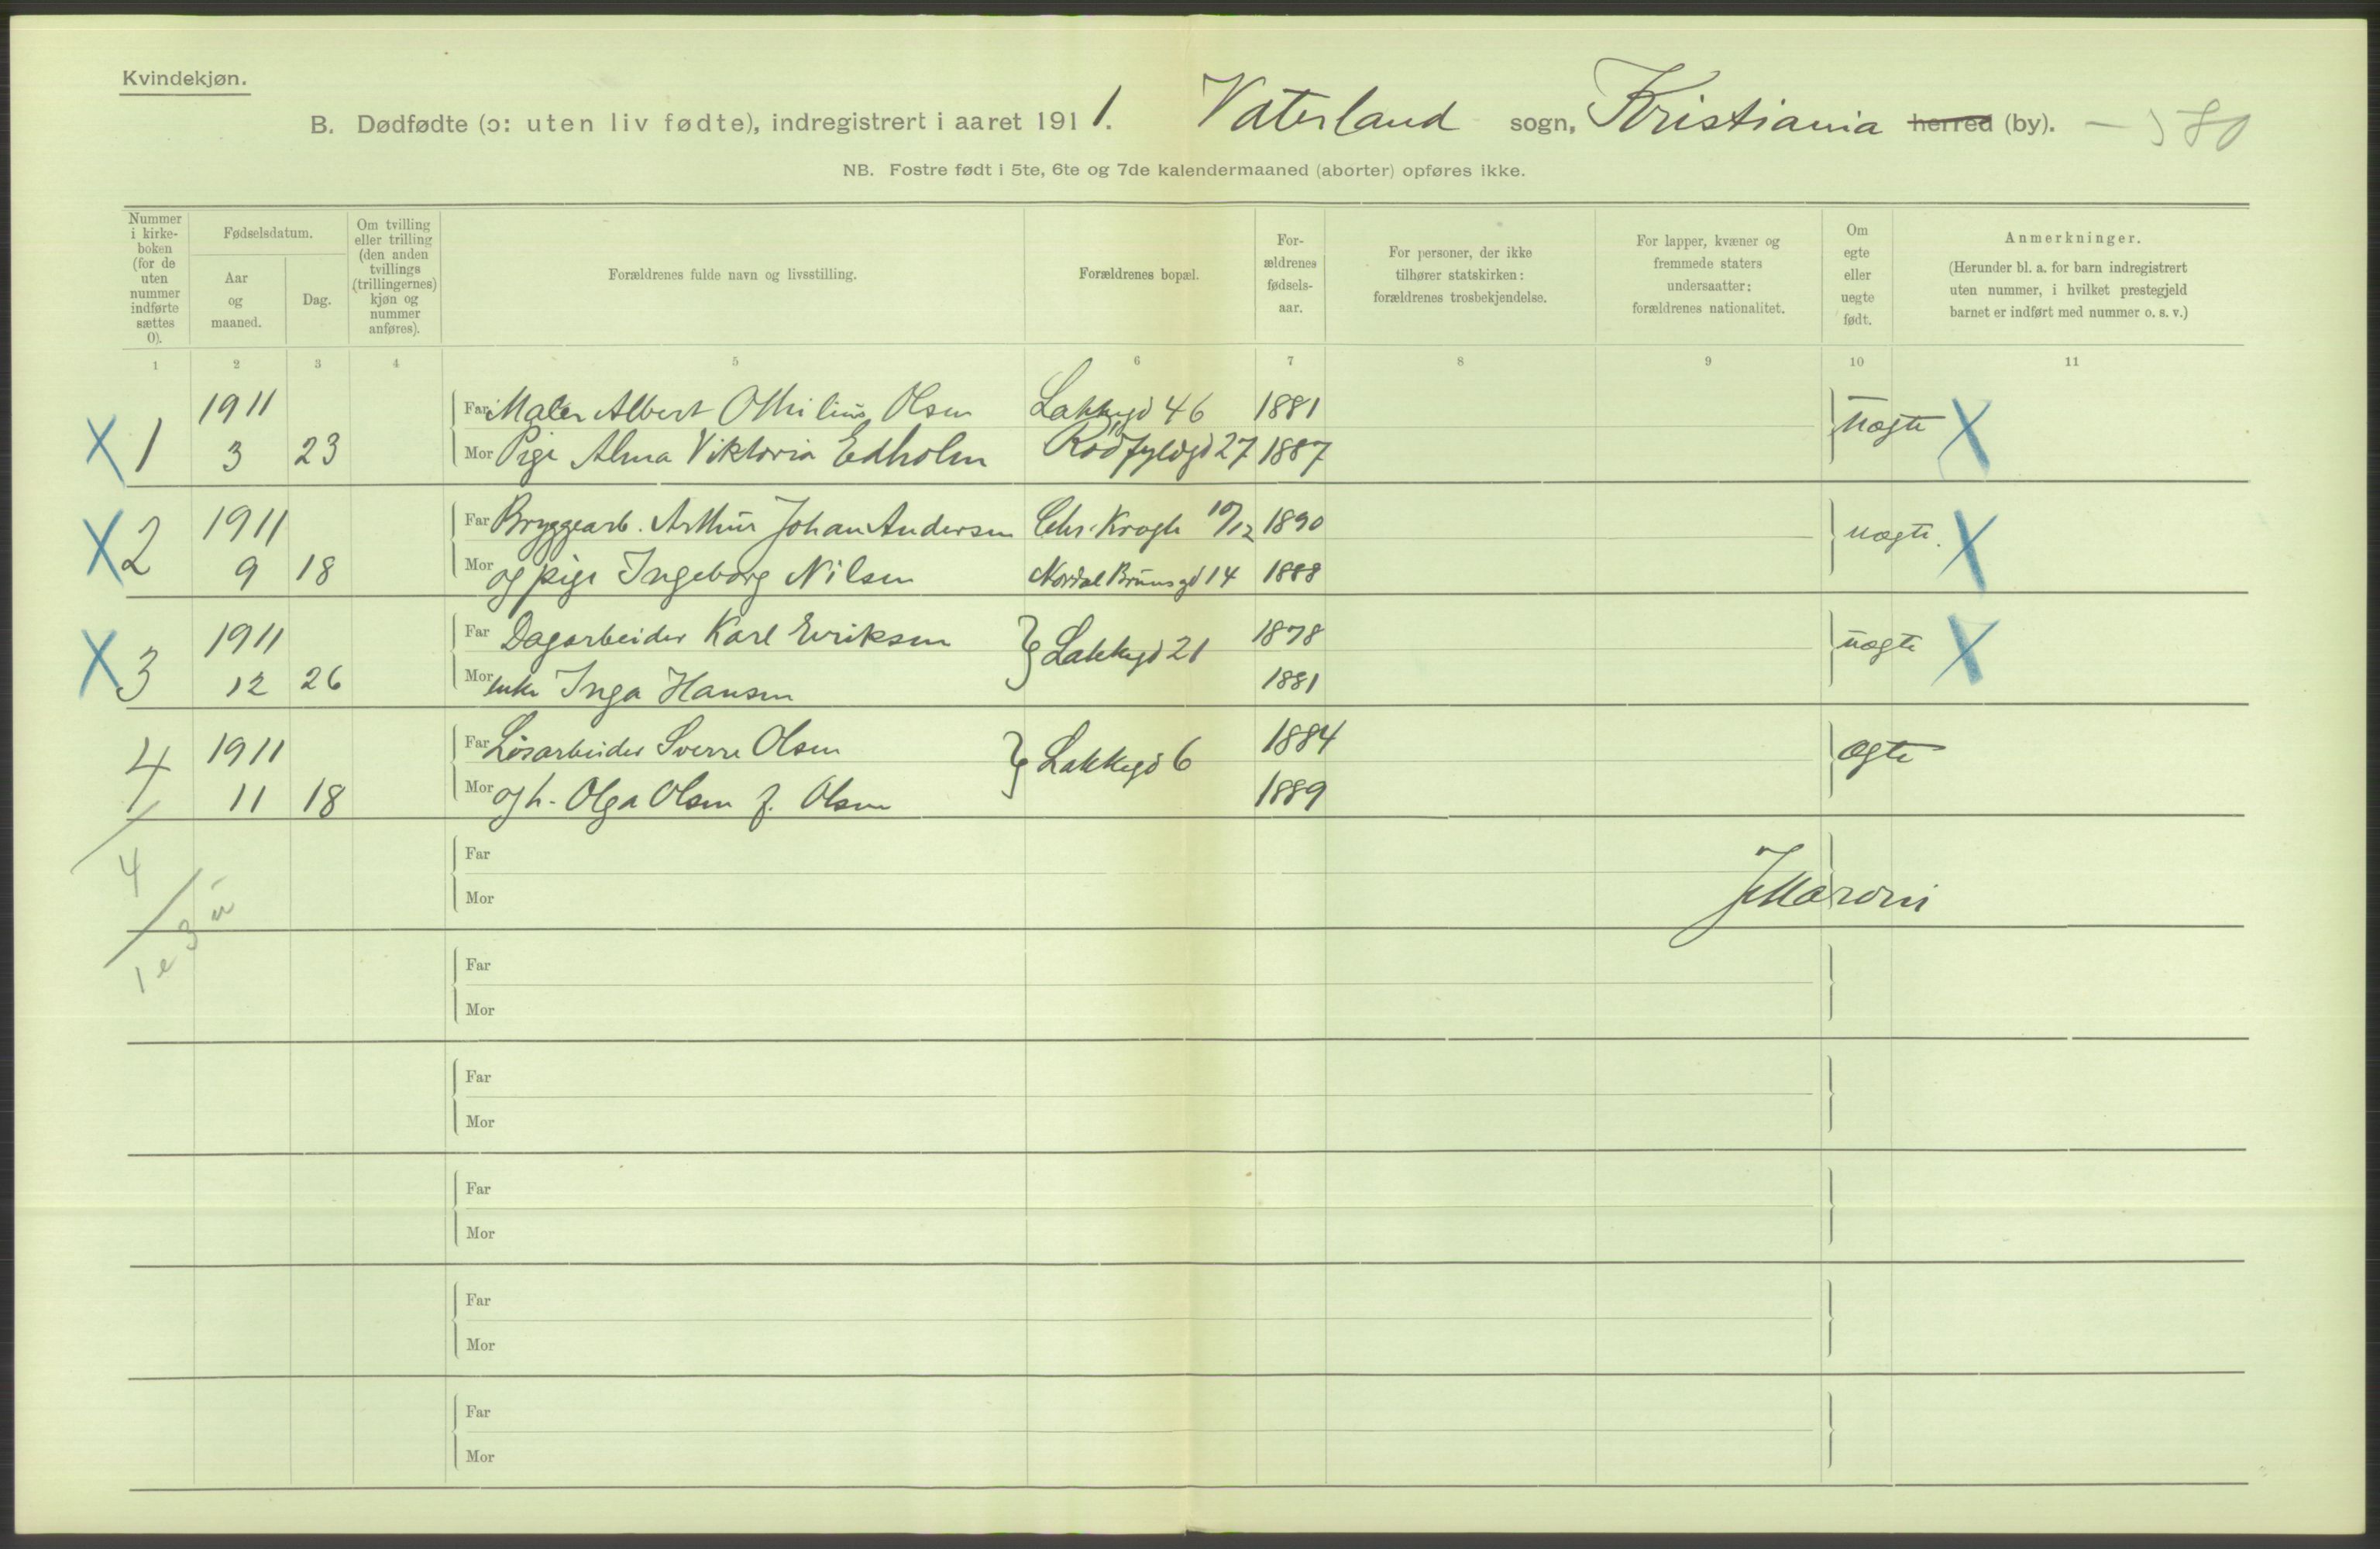 Kvindekjøn.
B. Dødfødte (ɔ: uten liv fødte), indregistrert i aaret 1911. Vaterland sogn, Kristiania herred (by). – 580
NB. Fostre født i 5te, 6te og 7de kalendermaaned (aborter) opføres ikke.
Nummer i kirke-boken (for de uten nummer indførte sættes 0).
Fødselsdatum.
Aar og maaned.
Dag.
Om tvilling eller trilling (den anden tvillings (trillingernes) kjøn og nummer anføres).
Forældrenes fulde navn og livsstilling.
Forældrenes bopæl.
For-ældrenes fødsels-aar.
For personer, der ikke tilhører statskirken: forældrenes trosbekjendelse.
For lapper, kvæner og fremmede staters undersaatter: forældrenes nationalitet.
Om egte eller uegte født.
Anmerkninger.
(Herunder bl. a. for barn indregistrert uten nummer, i hvilket prestegjeld barnet er indført med nummer o. s. v.)
1 2 3 4 5 6 7 8 9 10 11
X 1 1911 Far Maler Albert Othilius Olsen Lakkegd 46 1881 uægte X
3 23 Mor Pige Alma Viktoria Edholm Rødfyldgd 27 1887
X 2 1911 Far Bryggearb. Arthur Johan Andersen Chr. Krogh 10/12 1890 uægte. X
9 18 Mor og pige Ingeborg Nilsen Nordal Brunsgd 14 1888
X 3 1911 Far Dagarbeider Karl Eriksen } Lakkegd 21 1878 uægte X
12 26 Mor enke Inga Hansen 1881
4 1911 Far Løsarbeider Sverre Olsen } Lakkegd 6 1884 ægte
11 18 Mor og h. Olga Olsen f. Olsen 1889
4
1 e 3 u
Far
Mor
Maroni
Far
Mor
Far
Mor
Far
Mor
Far
Mor
Far
Mor